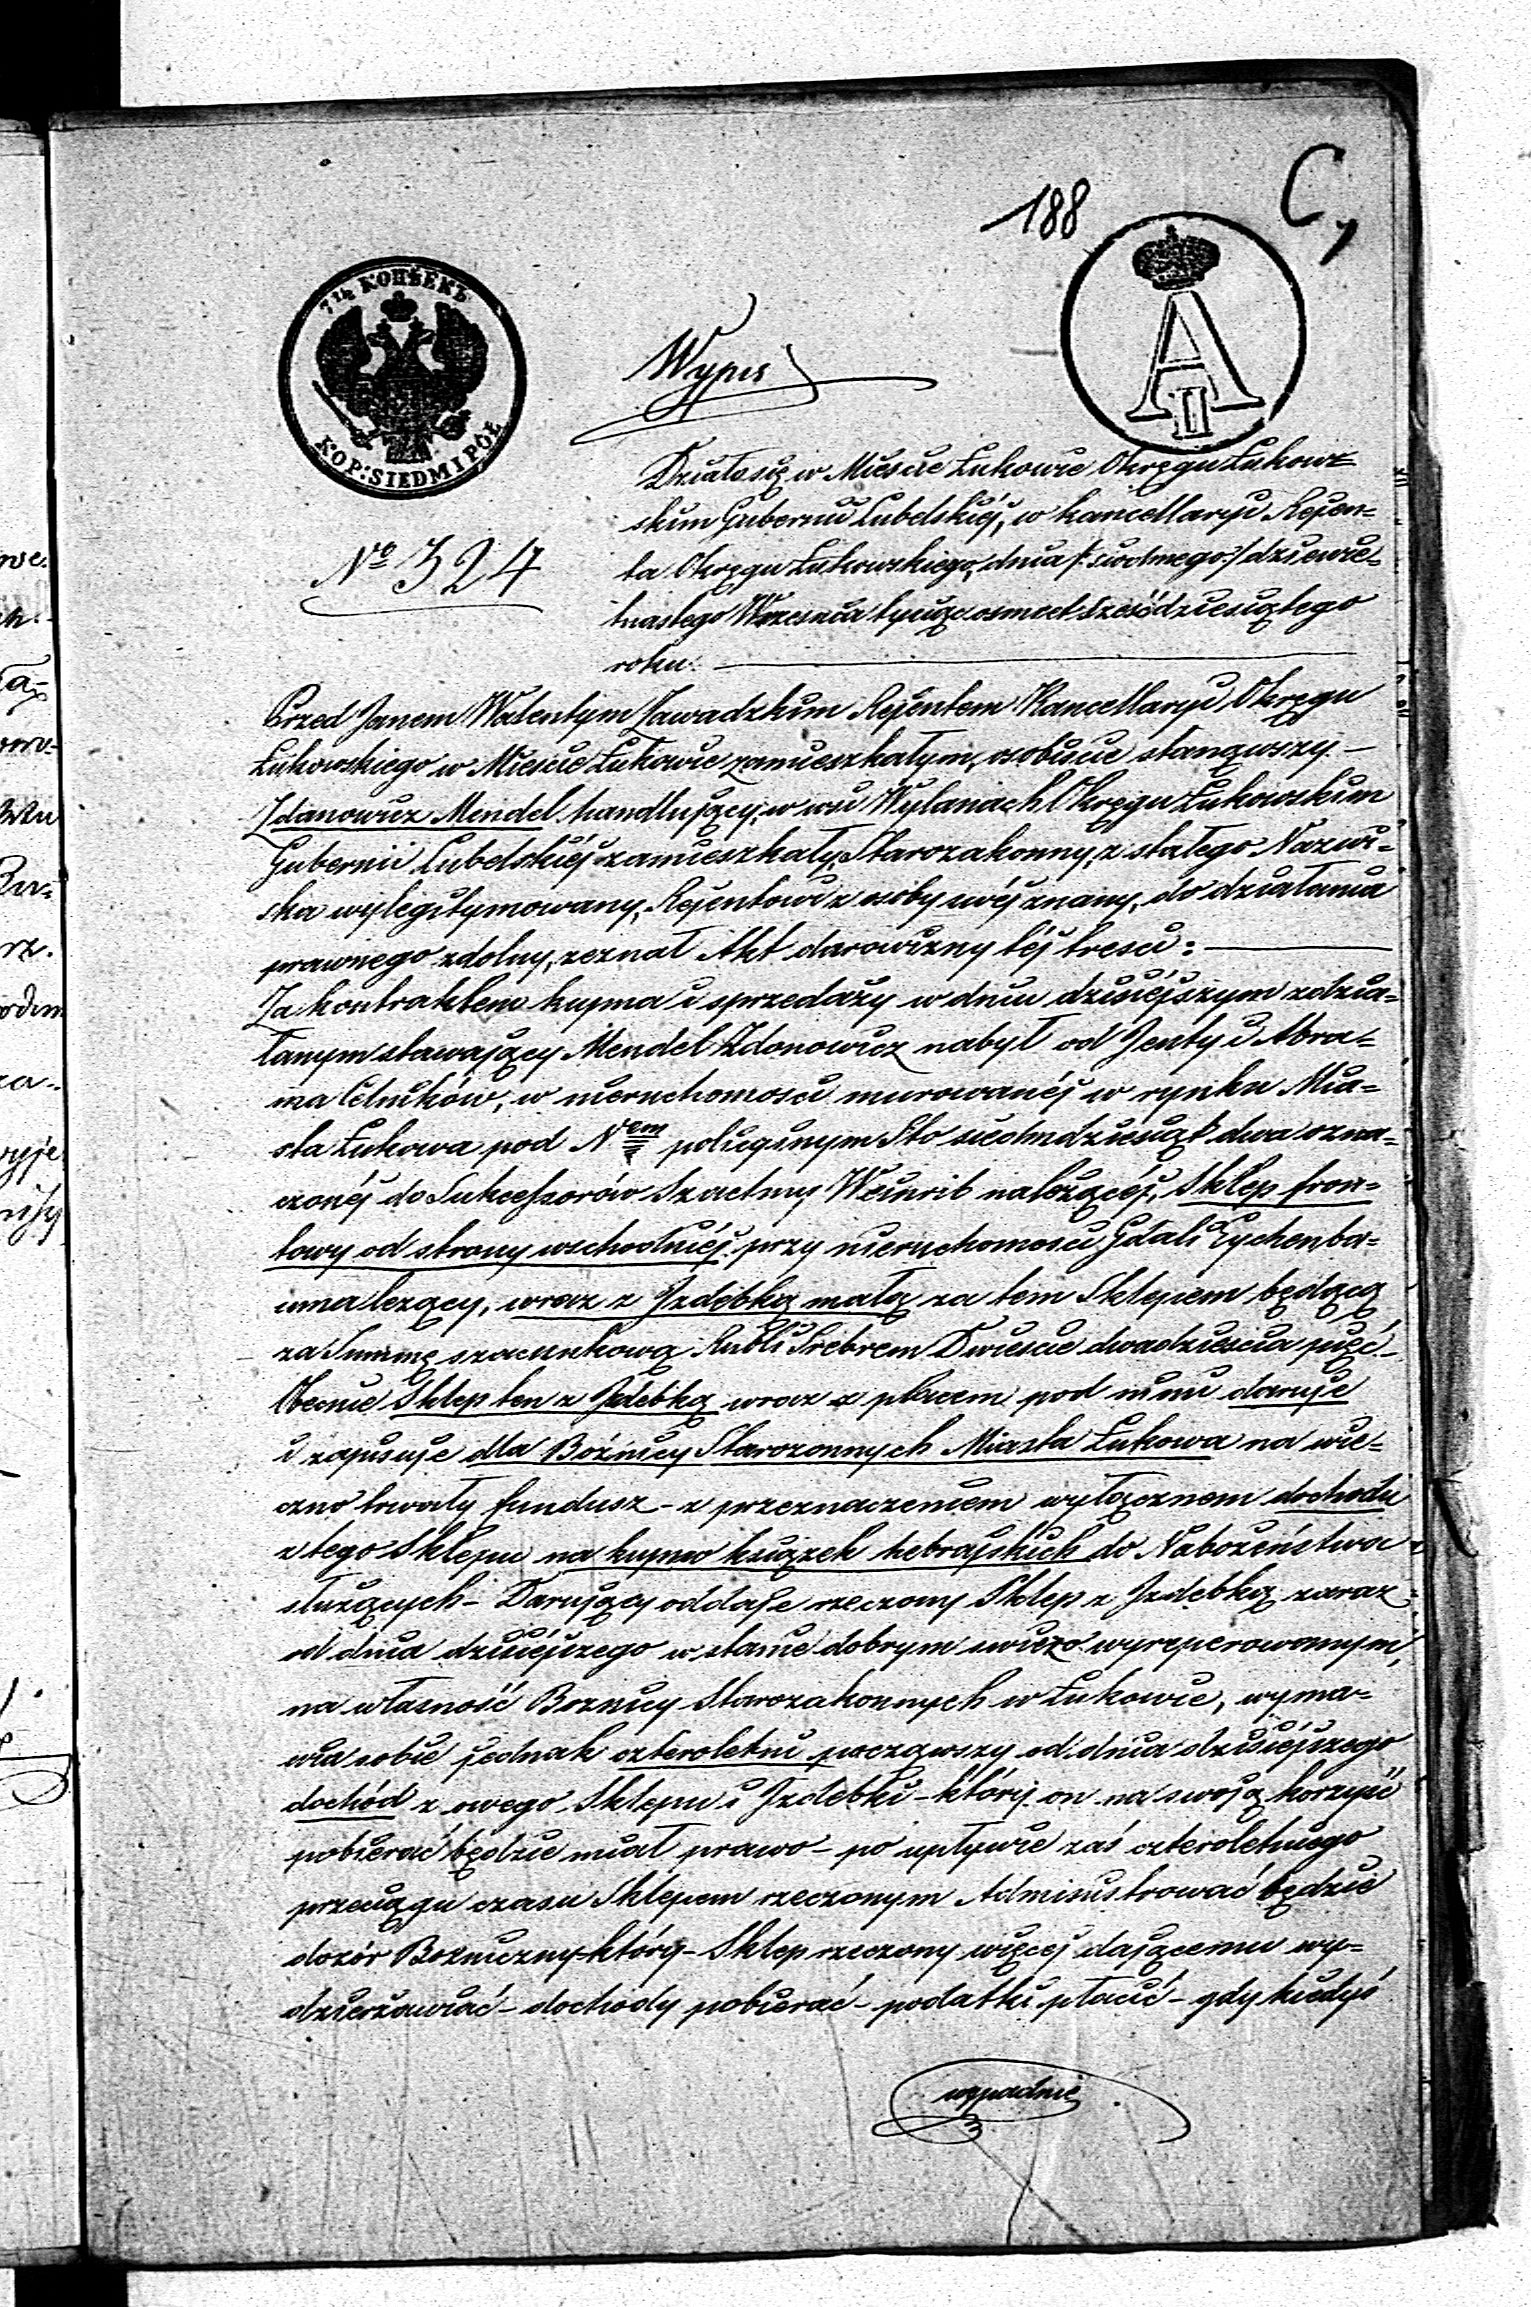 188
C,
7 1/2 КОПѢЕКЪ
KOP: SIEDM I PÓŁ
A II
Wypis
Działo się w Mieście Łukowie Okręgu Łukow-
skim Gubernii Lubelskiéj, w kancellaryi Rejen-
№ 324
ta Okręgu Łukowskiego, dnia /: siodmego :/ dziewie-
tnastego Września tysiąc osmset sześćdziesiątego
roku.
Przed Janem Walentym Zawadzkim Rejentem Kancellaryi Okręgu
Łukowskiego w Mieście Łukowie zamieszkałym, osobiście stanąwszy –
Zdanowicz Mendel handlujący, w wsi Wylanach Okręgu Łukowskim
Gubernii Lubelskiéj zamieszkały, Starozakonny, z stałego Nazwi-
ska wylegitymowany, Rejentowi z osoby swéj znany, do działania
prawnego zdolny, zeznał Akt darowizny téj treści:
Za kontraktem kupna i sprzedaży w dniu dzisiéjszym zdzia-
łanym stawający Mendel Zdonowicz nabył od Jenty i Abra-
ma Celników, w nieruchomości murowanéj w rynku Mia-
sta Łukowa pod Nrem policyinym Sto siedmdziesiąt dwa ozna-
czonéj do Sukcessorów Szachny Weinrib należącéj, Sklep fron-
towy od strony wschodniéj przy nieruchomości Gdali Tychenba-
uma leżący, wraz z Izdebką małą za tem Sklepiem będącą
za Summę szacunkową Rubli Srebrem Dwieście dwadzieścia pięć –
Obecnie Sklep ten z Izdebką wraz z placem pod nimi daruje
i zapisuje dla Bóżnicy Starozonnych Miasta Łukowa na wie-
czno trwały fundusz – z przeznaczeniem wyłącznem dochodu
z tego Sklepu na kupno książek hebrajskich do Nabożeństwa
służących – Darujący oddaje rzeczony Sklep z Izdebką zaraz
od dnia dzisiéjszego w stanie dobrym świeżo wyreperowanym,
na własność Boznicy Starozakonnych w Łukowie, wyma-
wia sobie jednak czteroletni począwszy od dnia dzisiéjszego
dochód z owego Sklepu i Izdebki – któréj on na swoją korzyść
pobierać będzie miał prawo – po upływie zaś czteroletniego
przeciągu czasu Sklepem rzeczonym Admisistrować będzie
dozór Bożniczny który – Sklep rzeczony więcéj dającemu wy-
dzierżawiać – dochody pobierać – podatki płacić – gdy kiedyś
wypadnie